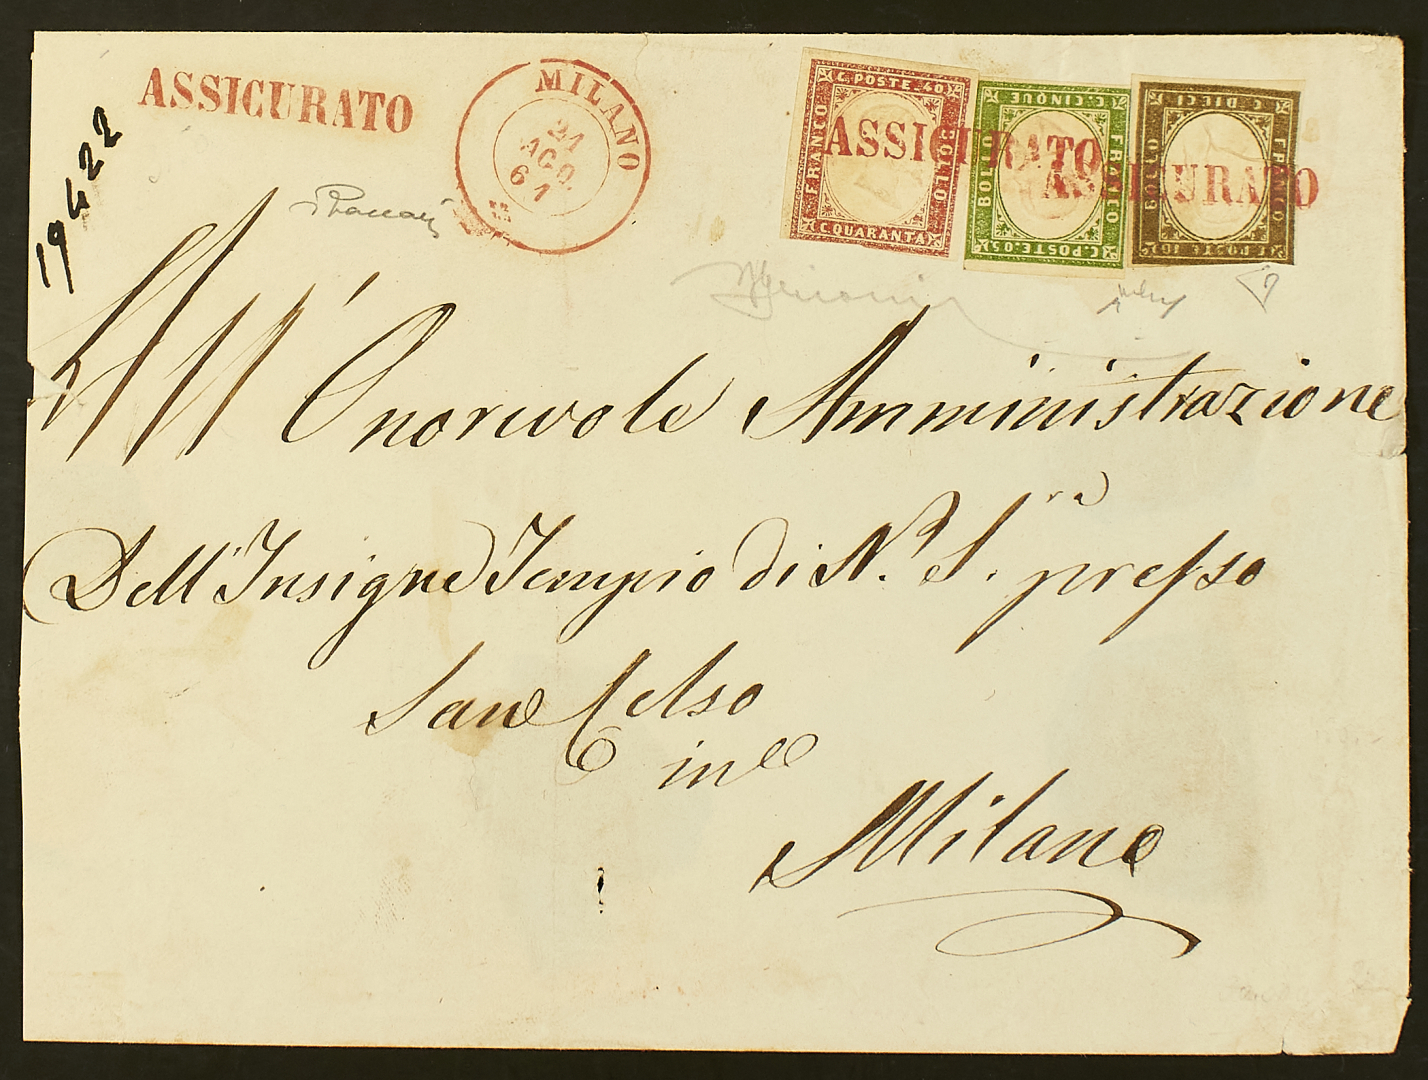 ASSICURATO
MILANO
21
AGO.
61
19422
C. POSTE. 40
FRANCO
BOLLO
C. QUARANTA
C. CINQUE
BOLLO
FRANCO
C. POSTE. 05
C. DIECI
BOLLO
FRANCO
C. POSTE. 10
ASSICURATO
ASSICURATO
All' Onorevole Amministrazione
Dell' Insigne Tempio di N.a S.ra presso
San Celso
in
Milano